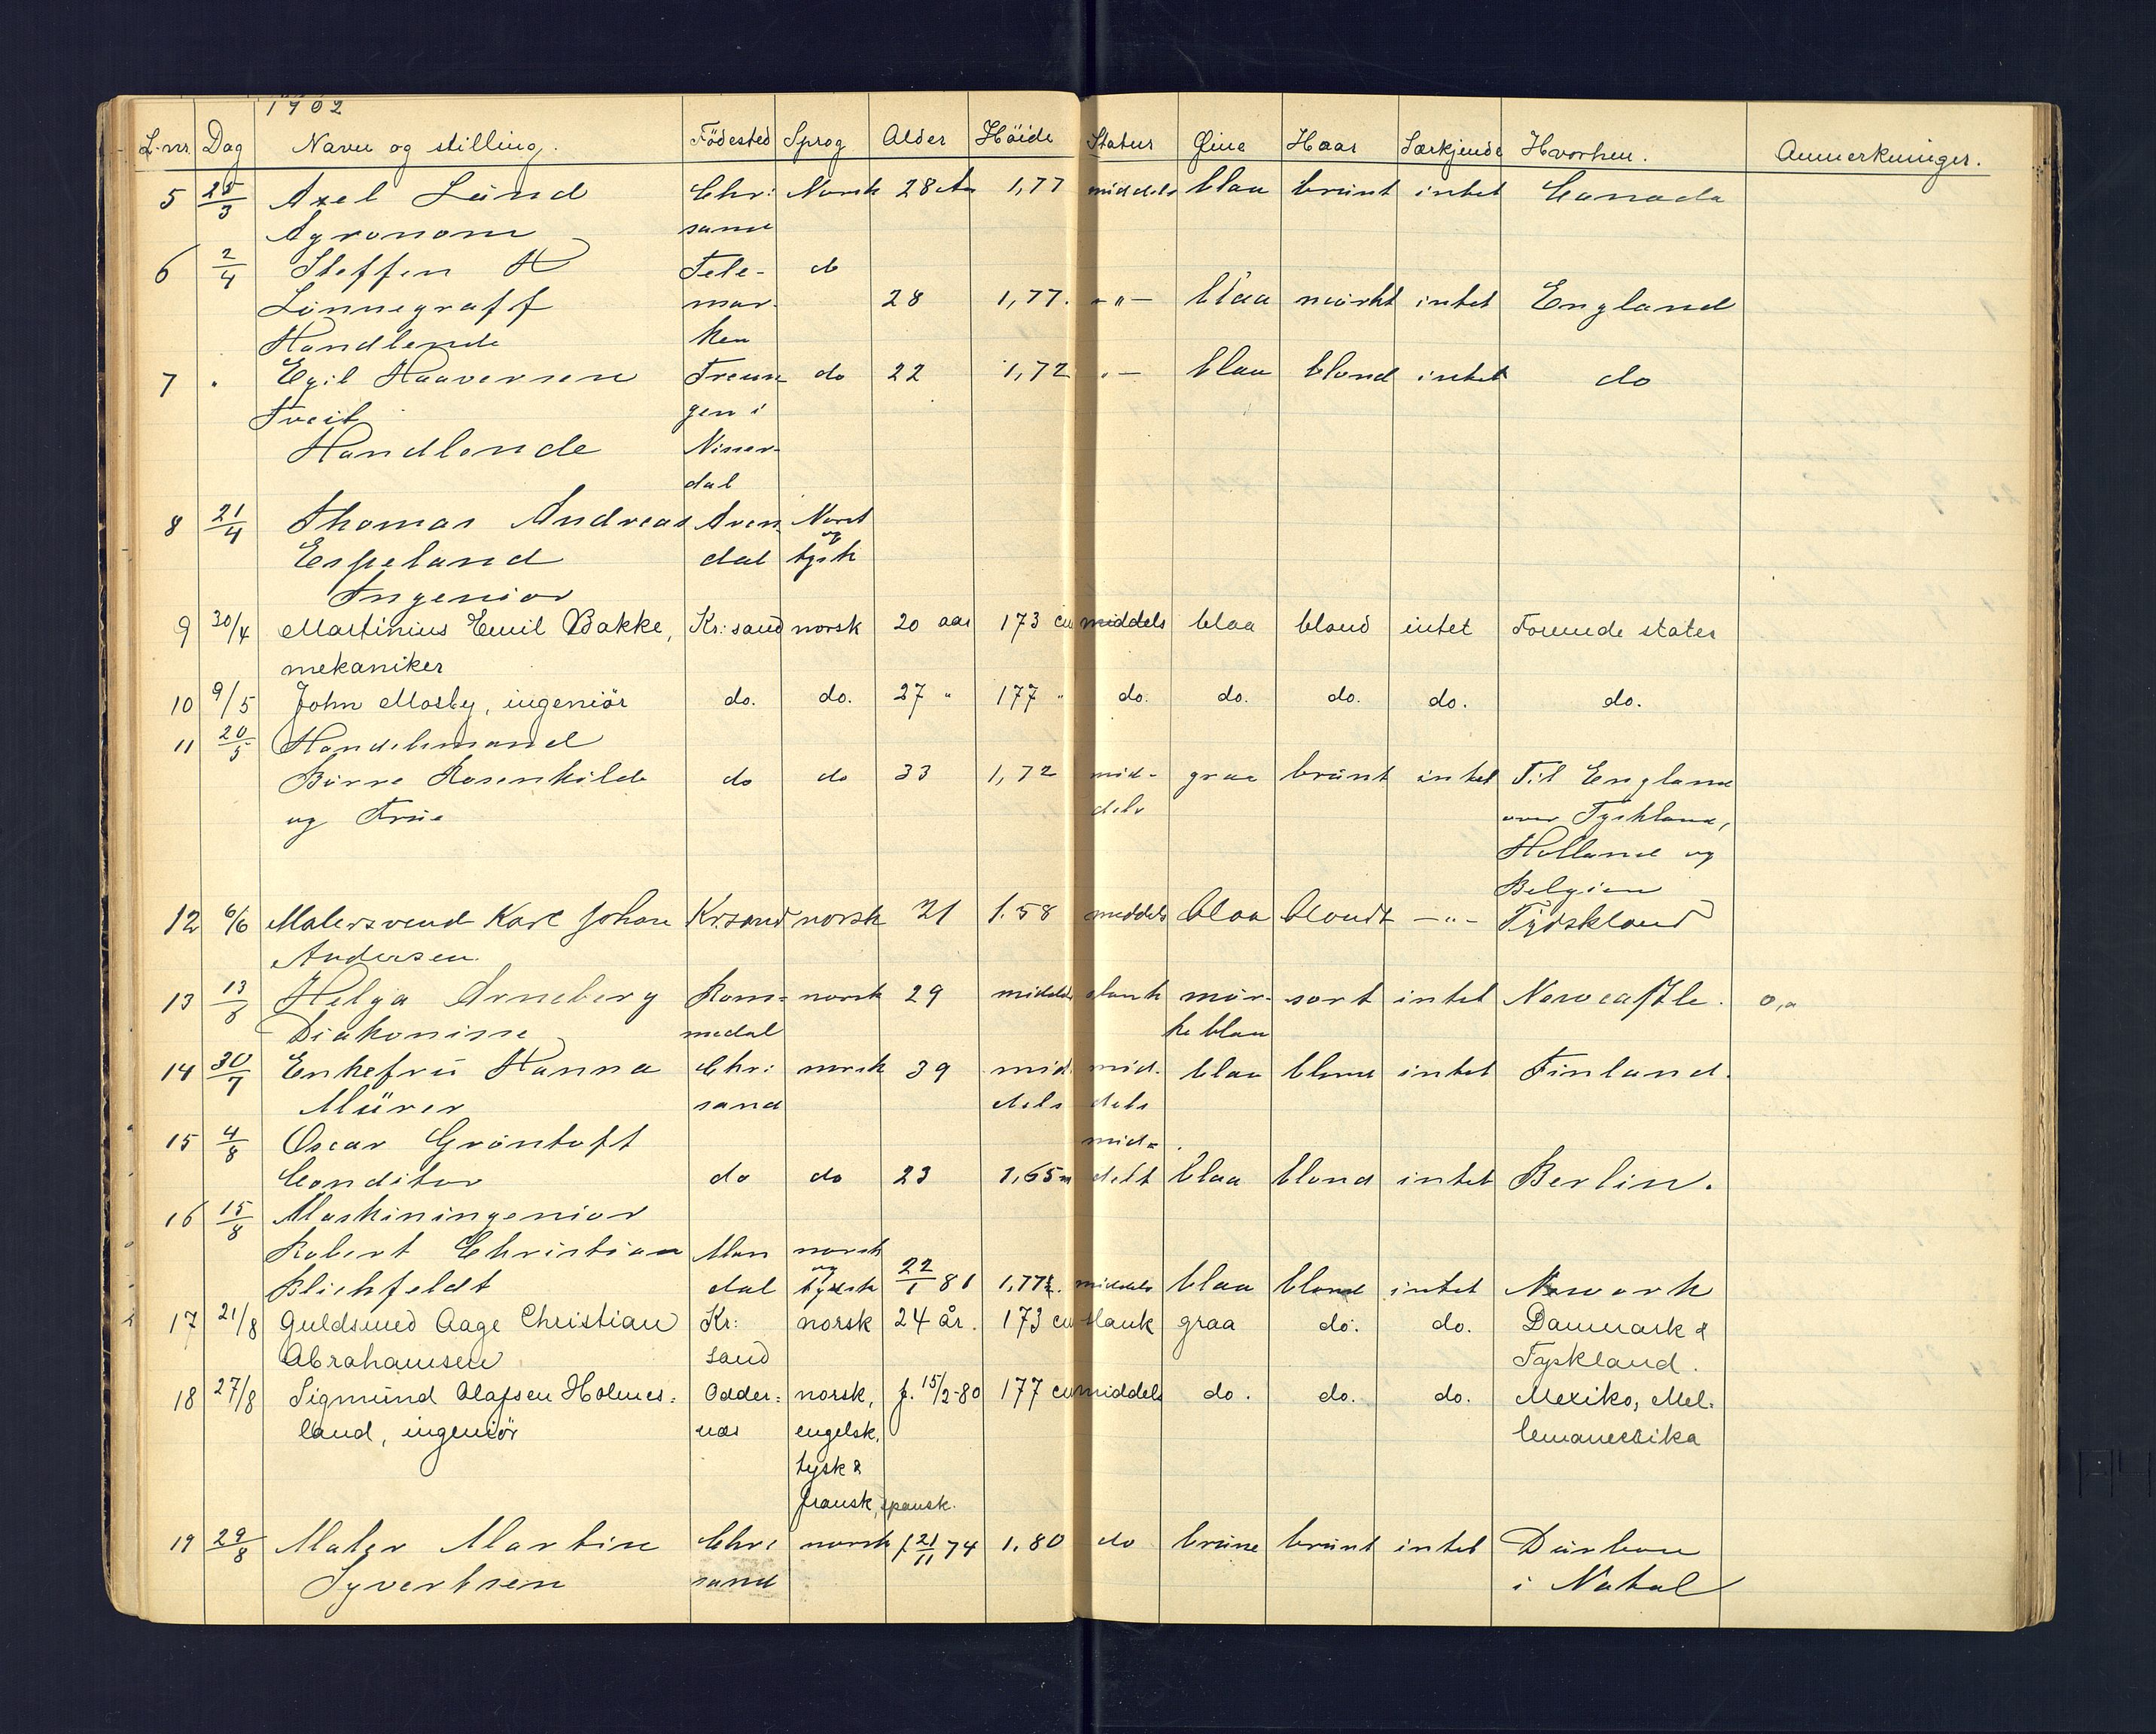 L.nr. Dag Navn og stilling. Födested Sprog Alder Höide Statur Øine Haar Særkjende Hvorhen. Anmerkninger.
5 25/3 Axel Lund Chr: Norsk 28 1,77 middels blaa brunt intet Canada
Agronom sand
6 2/4 Steffen H Tele- do
Lönnegraff mar- 28 1,77. -"- blaa mörkt intet England
Handlende ken
7 " Egil Haaversen Treun- do 22 1,72 "- blaa blond intet do
Tveit gen i
Handlende Nisser-
dal
8 21/4 Thomas Andreas Aren- Norsk
Espeland dal og tysk
Ingeniör
9 30/4 Martinius Emil Bakke, Kr:sand norsk 20 aar 173 cm middels blaa blond intet Forende stater
mekaniker
10 9/5 John Mosby, ingeniör do. do. 27 " 177 " do. do. do. do. do.
11 20/5 Handelsmand
Börre Rosenkilde do do 33 1,72 mid- graa brunt intet Til England
og Frue dels over Tyskland,
Holland og
Belgien
12 6/6 Malersvend Karl Johan Kr.sand norsk 21 1.58 middels blaa blondt -"- Tydskland
Andersen.
13 13/6 Helga Arneberg Rom- norsk 29 middels slank mör- sort intet Newcastle.
Diakonisse sdal ke blaa
14 30/7 Enkefru Hanna Chr: norsk 39 mid- mid- blaa blond intet Finland.
Mürer sand dels dels
15 4/8 Oscar Gröntoft mid-
Conditor do do 23 1,65 m dels blaa blond intet Berlin.
16 15/8 Maskiningeniör
Robert Christian Man norsk
Blichfeldt dal og tydsk 22/1 81 1,77½. middels blaa blond intet Newyork
17 21/8 Guldsmed Aage Christian Kr: norsk 24 år. 173 cm slank graa do. do. Danmark &
Abrahamsen sand Tyskland.
18 27/8 Sigmund Olafsen Holmes= Odder= norsk, f. 15/2-80 177 cm middels do. do. do. Mexiko, Mel-
land, ingeniör næs engelsk, lemamerika
tysk &
fransk, spansk.
19 29/8 Maler Martin Chr: norsk f. 21/11 74 1.80 do brune brunt intet Durban
Syvertsen sand i Natal